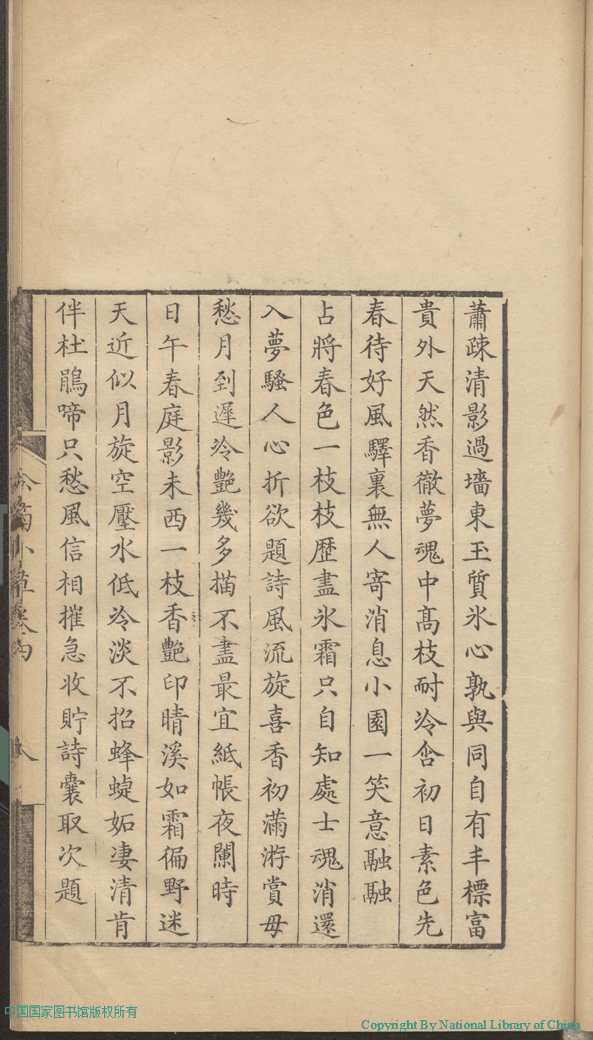 蕭疎清影過墻東玉質氷心孰與同自有丰標富
貴外天然香徹夢魂中髙枝耐冷含初日素色先
春待好風驛裏無人寄消息小園一笑意融融
占將春色一枝枝歴盡氷霜只自知處士魂消還
入夢騷人心折欲題詩風流旋喜香初滿游賞毋
愁月到遲冷艷幾多描不盡最宜紙帳夜闌時
日午春庭影未西一枝香艷印晴溪如霜徧野迷
天近似月旋空壓水低冷淡不招蜂蜨妬淒清肯
伴杜鵑啼只愁風信相摧急收貯詩囊取次題
中国国家图书馆版权所有
Copyright By National Library of China